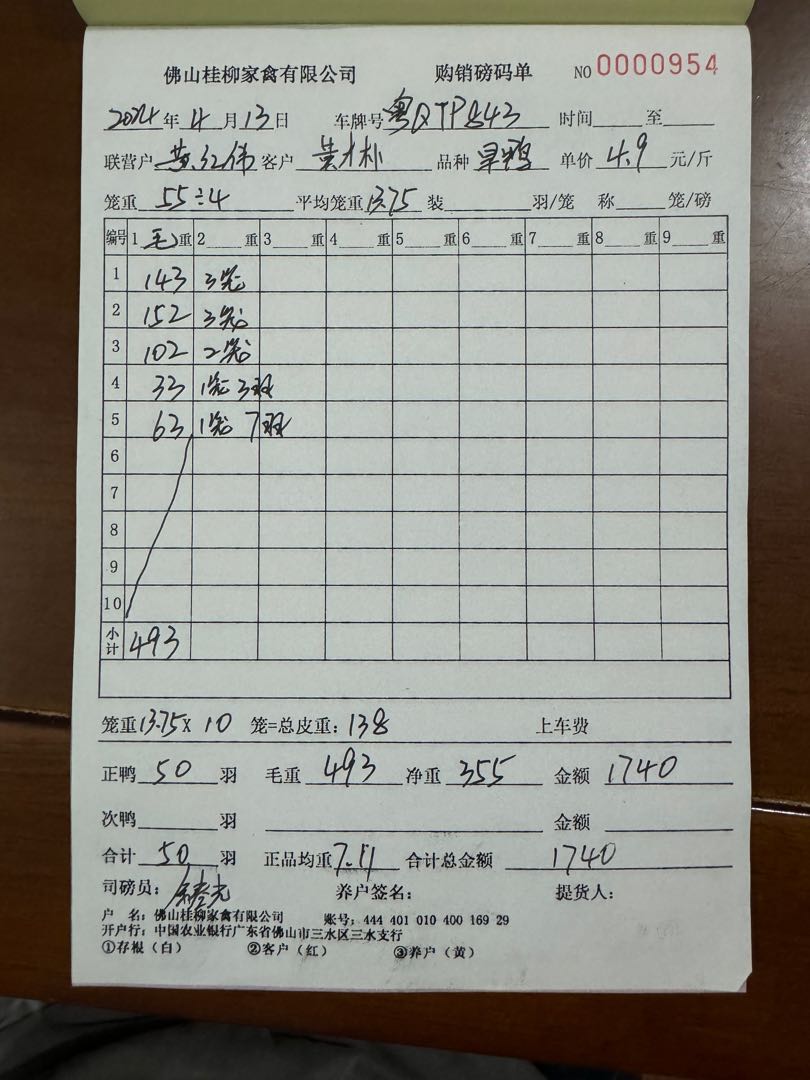 佛山桂柳家禽有限公司 购销磅码单 NO 0000954
2024年 4月 13日 车牌号 粤QTP843 时间 至
联营户 黄红伟 客户 黄才朴 品种 果鸭 单价 4.9 元/斤
笼重 55÷4 平均笼重 13.75 装 羽/笼 称 笼/磅
编号 1 毛 重 2 重 3 重 4 重 5 重 6 重 7 重 8 重 9 重
1 143 3笼
2 152 3笼
3 102 2笼
4 33 1笼 3羽
5 63 1笼 7羽
6
7
8
9
10
小计 493
笼重 13.75 X 10 笼=总皮重: 138 上车费
正鸭 50 羽 毛重 493 净重 355 金额 1740
次鸭 羽 金额
合计 50 羽 正品均重 7.11 合计总金额 1740
司磅员: 养户签名: 提货人:
户 名: 佛山桂柳家禽有限公司 账号: 444 401 010 400 169 29
开户行: 中国农业银行广东省佛山市三水区三水支行
①存根(白) ②客户(红) ③养户(黄)